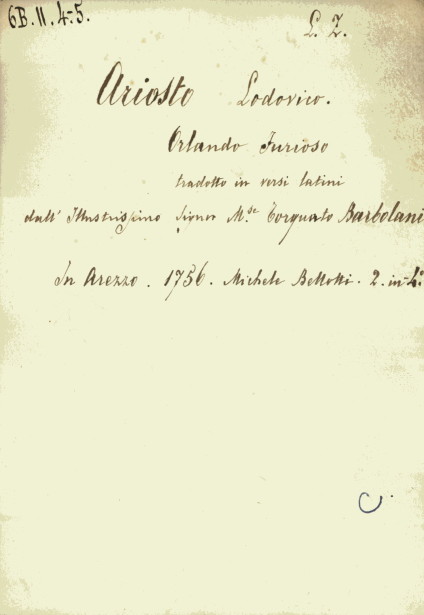 6B. II. 4-5.
L. Z.
Ariosto Lodovico.
Orlando Furioso
tradotto in versi latini
dall' Illustrissimo Signor M.se Torquato Barbolani
In Arezzo. 1756. Michele Bellotti. 2. in-4°
C.